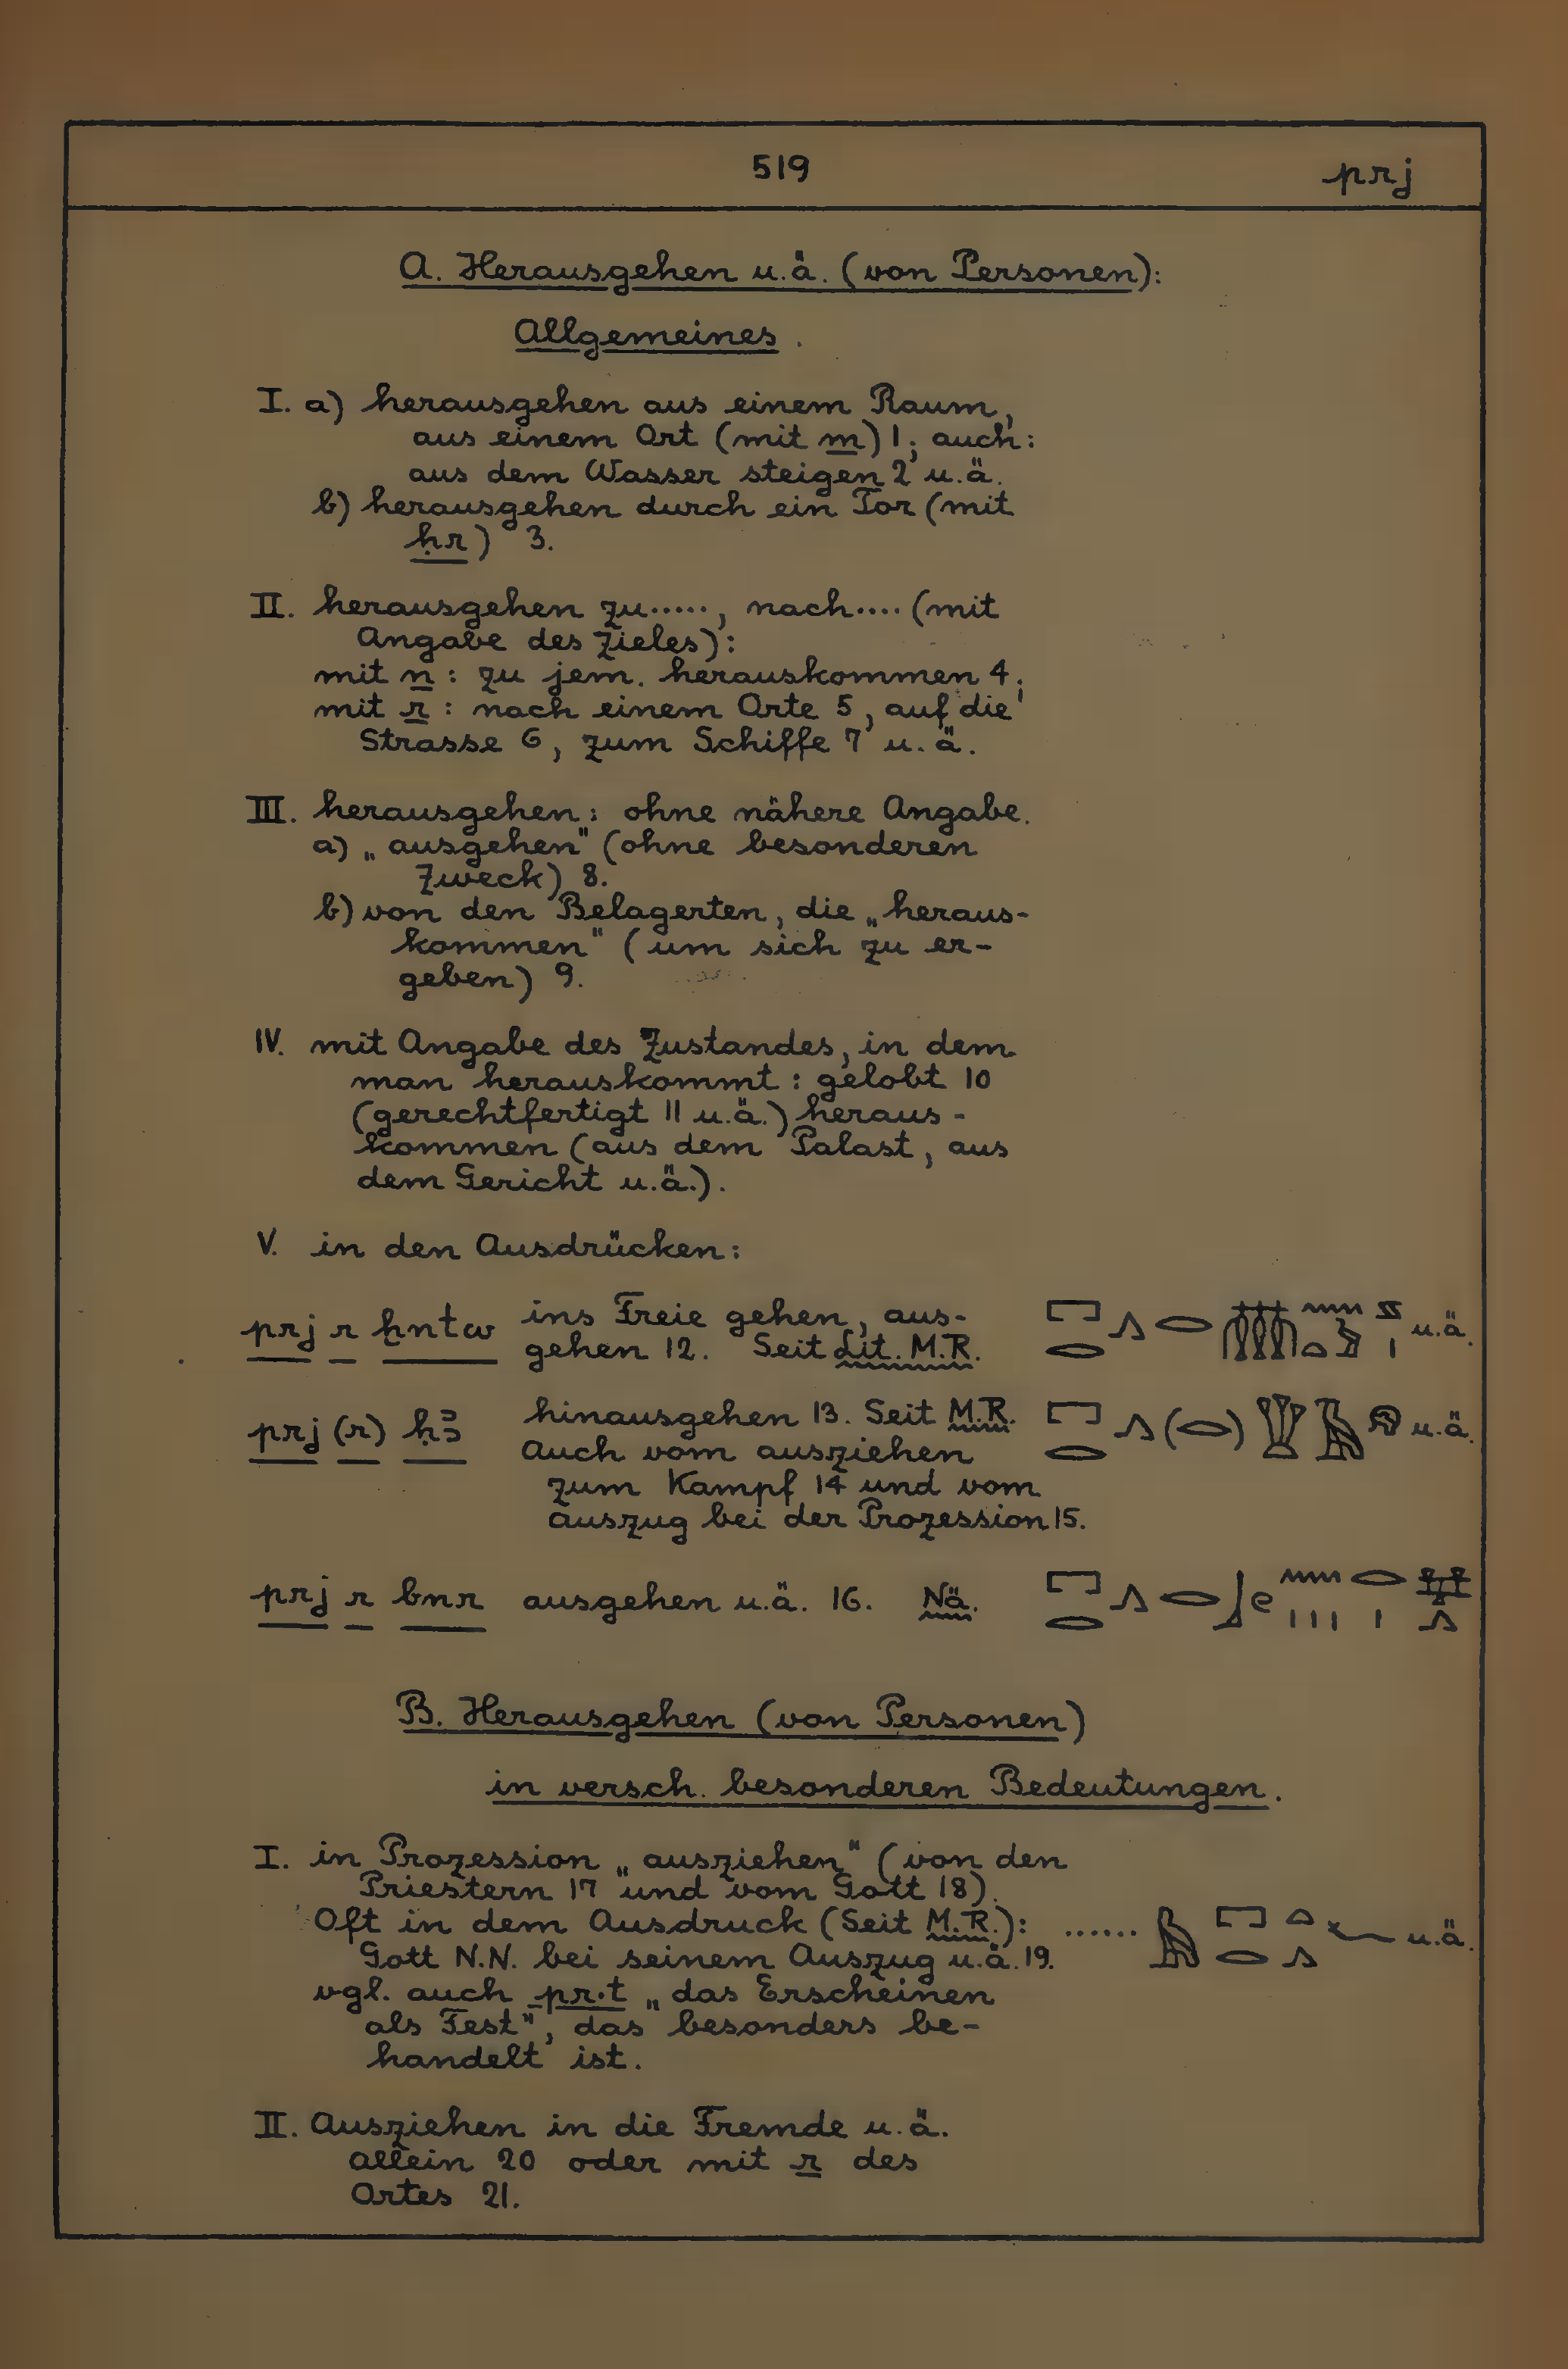 519 prj
A. Herausgehen u.ä. (von Personen):
Allgemeines.
I. a) herausgehen aus einem Raum,
aus einem Ort (mit m) 1; auch:
aus dem Wasser steigen 2 u.ä.
b) herausgehen durch ein Tor (mit
ḥr) 3.
II. herausgehen zu....., nach.... (mit
Angabe des Zieles):
mit n : zu jem. herauskommen 4;
mit r : nach einem Orte 5, auf die
Strasse 6, zum Schiffe 7 u.ä.
III. herausgehen: ohne nähere Angabe.
a) „ausgehen" (ohne besonderen
Zweck) 8.
b) von den Belagerten, die „heraus-
kommen" (um sich zu er-
geben) 9.
IV. mit Angabe des Zustandes, in dem
man herauskommt : gelobt 10
(gerechtfertigt 11 u.ä.) heraus-
kommen (aus dem Palast, aus
dem Gericht u.ä.).
V. in den Ausdrücken:
prj r ḫntw ins Freie gehen, aus- u.ä.
gehen 12. Seit Lit. M.R.
prj (r) ḥꜣ hinausgehen 13. Seit M.R. u.ä.
Auch vom ausziehen
zum Kampf 14 und vom
Auszug bei der Prozession 15.
prj r bnr ausgehen u.ä. 16. Nä.
B. Herausgehen (von Personen)
in versch. besonderen Bedeutungen.
I. in Prozession „ausziehen" (von den
Priestern 17 und vom Gott 18).
Oft in dem Ausdruck (Seit M.R.): ...... u.ä.
Gott N.N. bei seinem Auszug u.ä. 19.
vgl. auch pr.t „das Erscheinen
als Fest", das besonders be-
handelt ist.
II. Ausziehen in die Fremde u.ä.
allein 20 oder mit r des
Ortes 21.